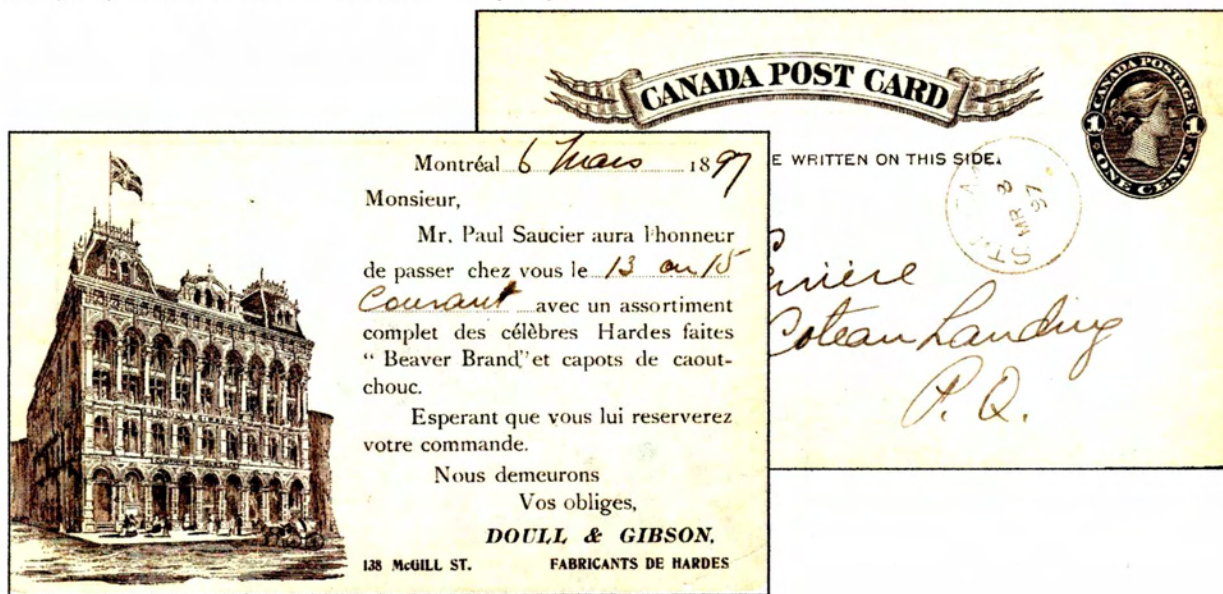 Montréal 6 Mars 1897
Monsieur,
Mr. Paul Saucier aura l'honneur
de passer chez vous le 13 ou 15
Courant avec un assortiment
complet des célèbres Hardes faites
" Beaver Brand" et capots de caout-
chouc.
Esperant que vous lui reserverez
votre commande.
Nous demeurons
Vos obliges,
DOULL & GIBSON.
138 McGILL ST. FABRICANTS DE HARDES
CANADA POST CARD
E WRITTEN ON THIS SIDE.
CANADA POSTAGE
1 1
ONE CENT
MR 8
97
Coteau Landing
P. Q.